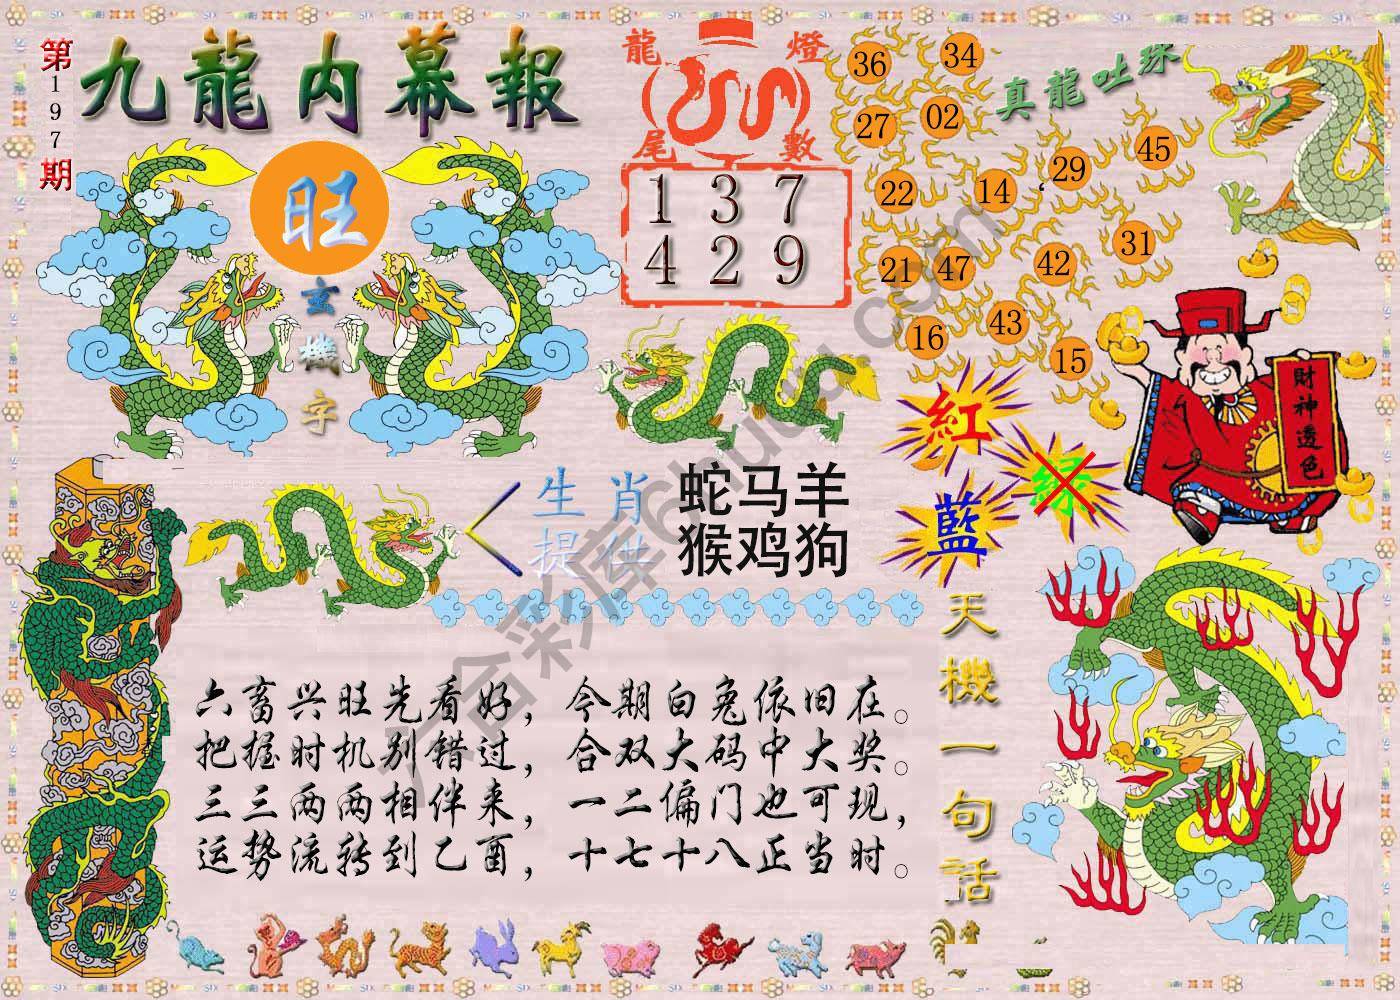 第197期
九龍内幕報
旺
玄機字
龍燈
尾數
1 3 7
4 2 9
真龍吐珠
36
34
27
02
29
45
22
14
31
21
47
42
16
43
15
財神透色
紅
绿
藍
生肖
提供
蛇马羊
猴鸡狗
天機一句话
六畜兴旺先看好，今期白兔依旧在。
把握时机别错过，合双大码中大奖。
三三两两相伴来，一二偏门也可现，
运势流转到乙酉，十七十八正当时。
六合彩库6hudu.com